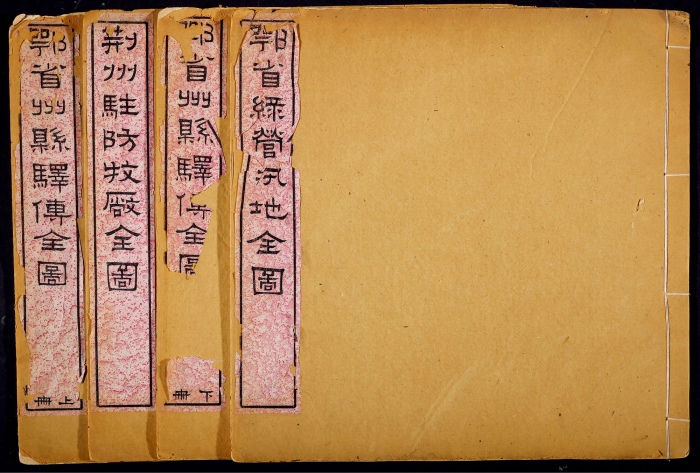 鄂省綠營汛地全圖
鄂省州縣驛傳全圖
下冊
荊州駐防牧廠全圖
鄂省州縣驛傳全圖
上冊